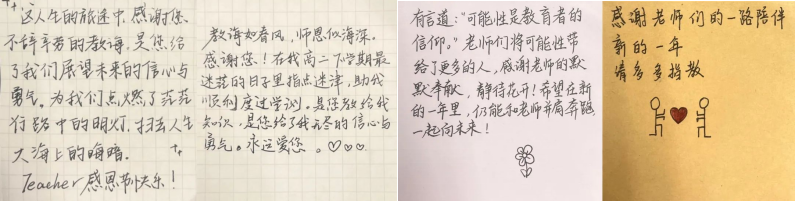 这人生的旅途中,感谢您
不辞辛劳的教诲,是您给
了我们展望未来的信心与
勇气。为我们点燃了茫茫
行路中的明灯,扫去人生
大海上的晦暗。
Teacher感恩节快乐!
教诲如春风,师恩似海深。
感谢您!在我高二下学期最
迷茫的日子里指点迷津,助我
顺利度过学识。是您教给我
知识,是您给了我无尽的信心与
勇气。永远爱您。♡♡♡
有言道:“可能性是教育者的
信仰。”老师们将可能性带
给了更多的人,感谢老师的默
默奉献,静待花开!希望在新
的一年里,仍能和老师并肩奔跑
一起向未来!
感谢老师们的一路陪伴
新的一年
请多多指教